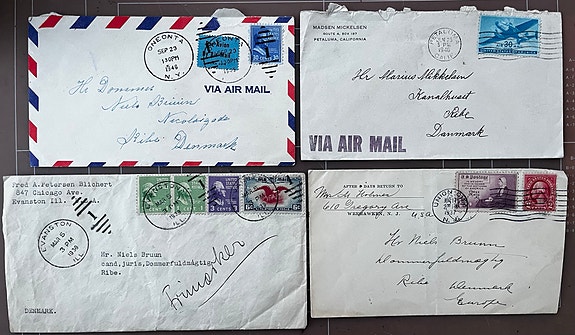 ONEONTA
SEP 23
130PM
1946
N.Y.
Par Avion
VIA AIR MAIL
Hr Dommer
Niels Bruun
Nicolaigade
Ribe
Denmark
MADSEN MICKELSEN
ROUTE 4, BOX 187
PETALUMA, CALIFORNIA
3 PM
CALIF.
30
Hr Marius Mikkelsen
Kanalhuset
Ribe
Denmark
VIA AIR MAIL
Fred A.Petersen Bilchert
847 Chicago Ave.
Evanston Ill.
EVANSTON
1
3 PM
ILL.
3 CENTS 3
Mr. Niels Bruun
cand.juris,Dommerfuldmægtig
Ribe.
Frimærker
DENMARK.
AFTER 5 DAYS RETURN TO
Holmer
610 Gregory Ave
WEEHAWKEN, N. J.
USA
U.S. Postage
UNION CITY
N.J.
Hr Niels Bruun
Dommerfuldmægtig
Ribe Denmark
Europe